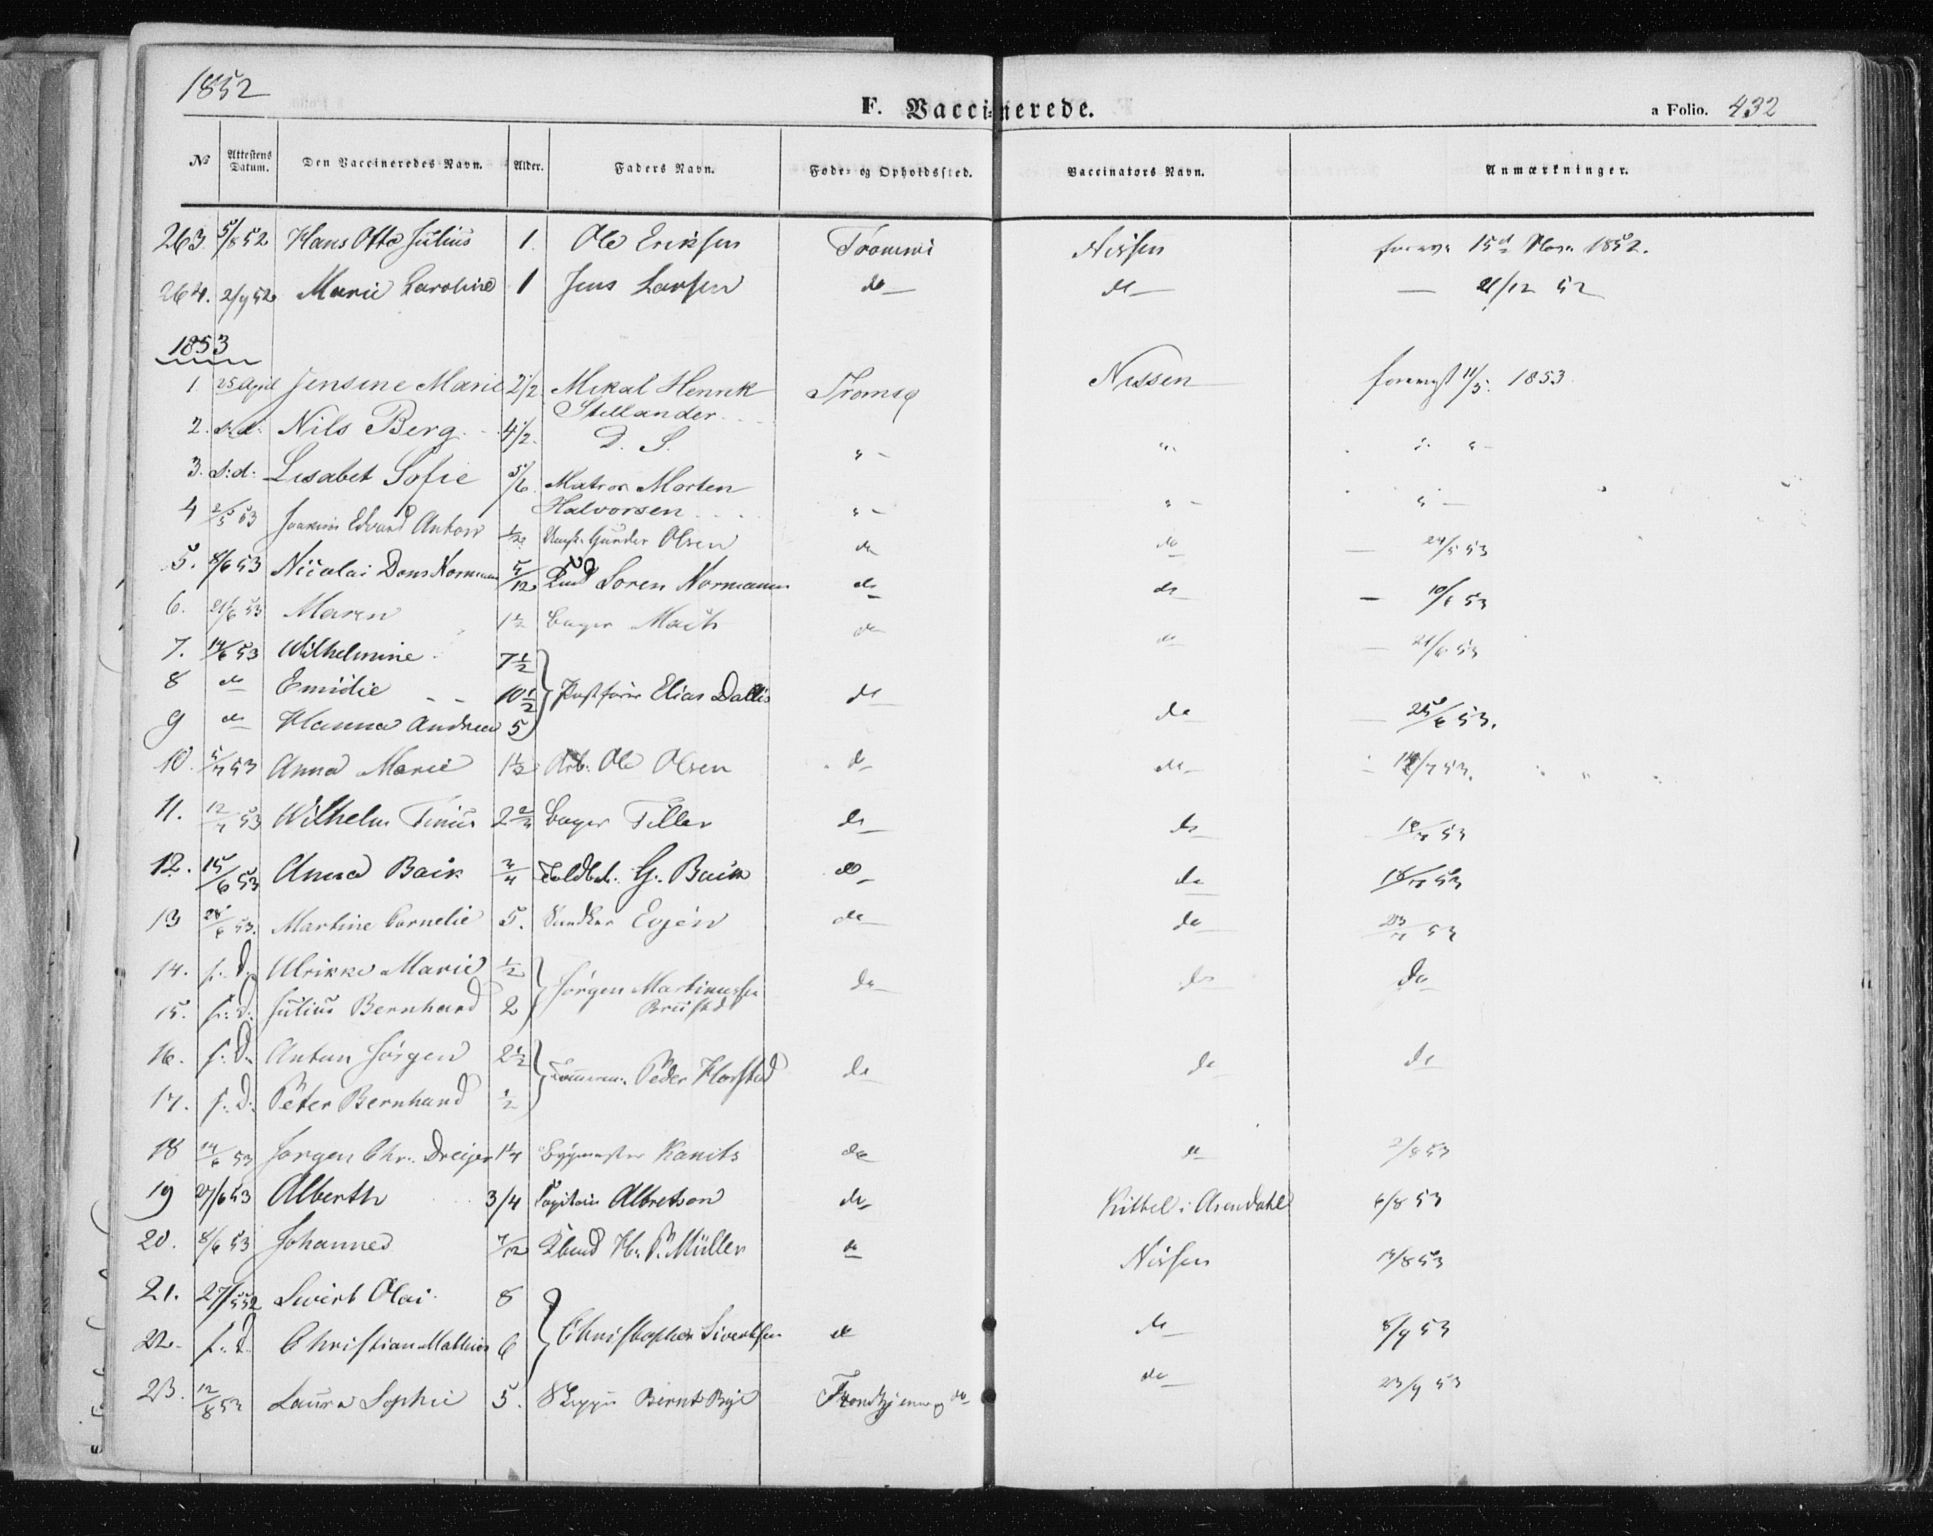 1852
F. Vaccinerede.
a Folio. 432
No Attestens Datum. Den Vaccineredes Navn. Alder. Faders Navn. Føde- og Opholdssted. Vaccinators Navn. Anmærkninger.
263. 5/8 52 Hans Otto Julius 1. Ole Eriksen Nissen 15d 1852.
264. 2/9 52 Marie Caroline 1 Jens Larsen do do — 21/12 52
1853
1. 25 April Jensine Marie 2 1/2 Mikal Henrik Stellander Tromsø Nissen 11/5. 1853
2. s.d. Nils Berg 4 1/2. D. S. " - " "
3. S:d. Lisabet Sofie 5/6. Matros Morten Halvorsen " - " - " -
4 2/5 53 Joakim Edvard Anton 1/2 Gunder Olsen do do — 24/5 53
5. 8/6 53 Nicolai Dons Normann 5/12 Soren Normann do do — 10/6 53
6. 21/6 53 Maren 1 1/2 Mack do do — 21/6 53
7. 14/6 53 Wilhelmine 7 1/2
8 do Emidie 10 1/2 Elias Dallis do
9 do Hanna Andrea 5 do — 25/6 53.
10. 5/7 53 Anna Marie 1 1/2 Arb. Ole Olsen do do 53.
11. 12/7 53 Wilhelm Tinius 2 Tiller do do 53
12. 15/6 53 Anna Baik 3/4 Toldbet. G. Baik do do 18/7 53
13 28/6 53. Martine Cornelie 5. Evjen do do 23/7 53
14. s. D. Ulrikke Marie 1/2 Jörgen Martinussen do do do
15. s. D. Julius Bernhard 2
16. s. D. Anton Jörgen 2 1/2 Peder Horsted do do do
17. s. D. Peter Bernhard 1/2
18 14/6 53 Jørgen Chr. Dreijer 1 1/4 Kanits do do 2/8 53
19 27/6 53 Alberth 3/4 Albretson do Kittel i Arendahl 6/8 53
20. 8/6 53 Johannes 7/12 H. P. Müller do Nissen 53
21. 27/5 52 Sivert Olai 8 Christopher Sivertsen do do 8/9 53
22. s. d. Christian Mathias 6
23. 12/8 53 Laura Sophie 5. Bernt Trondhjem og do do 23/9 53